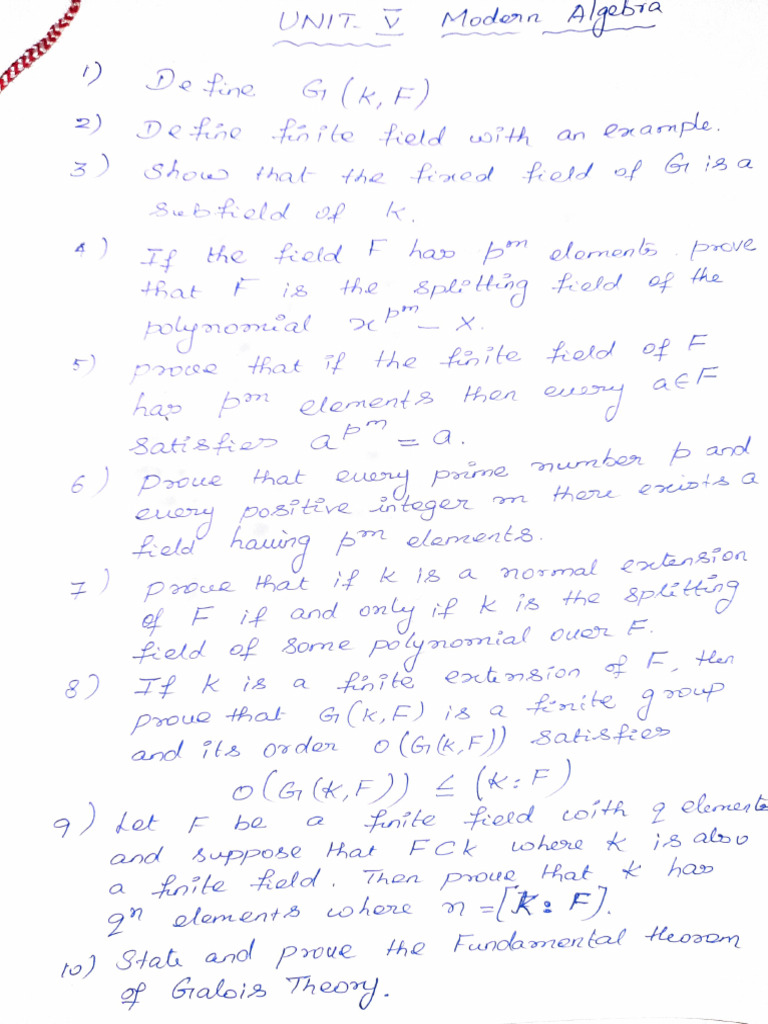 UNIT - V Modern Algebra
1) Define G(K, F)
2) Define finite field with an example.
3) Show that the fixed field of G is a
subfield of K.
4) If the field F has p^m elements prove
that F is the splitting field of the
polynomial x^{p^m} - x.
5) prove that if the finite field of F
has p^m elements then every a ∈ F
satisfies a^{p^m} = a.
6) Prove that every prime number p and
every positive integer m there exists a
field having p^m elements.
7) Prove that if K is a normal extension
of F if and only if K is the splitting
field of some polynomial over F.
8) If K is a finite extension of F, then
prove that G(K,F) is a finite group
and its order O(G(K,F)) satisfies
O(G(K,F)) ≤ (K:F)
9) Let F be a finite field with q elements
and suppose that F⊂K where K is also
a finite field. Then prove that K has
q^n elements where n = [K:F].
10) State and prove the Fundamental theorem
of Galois Theory.